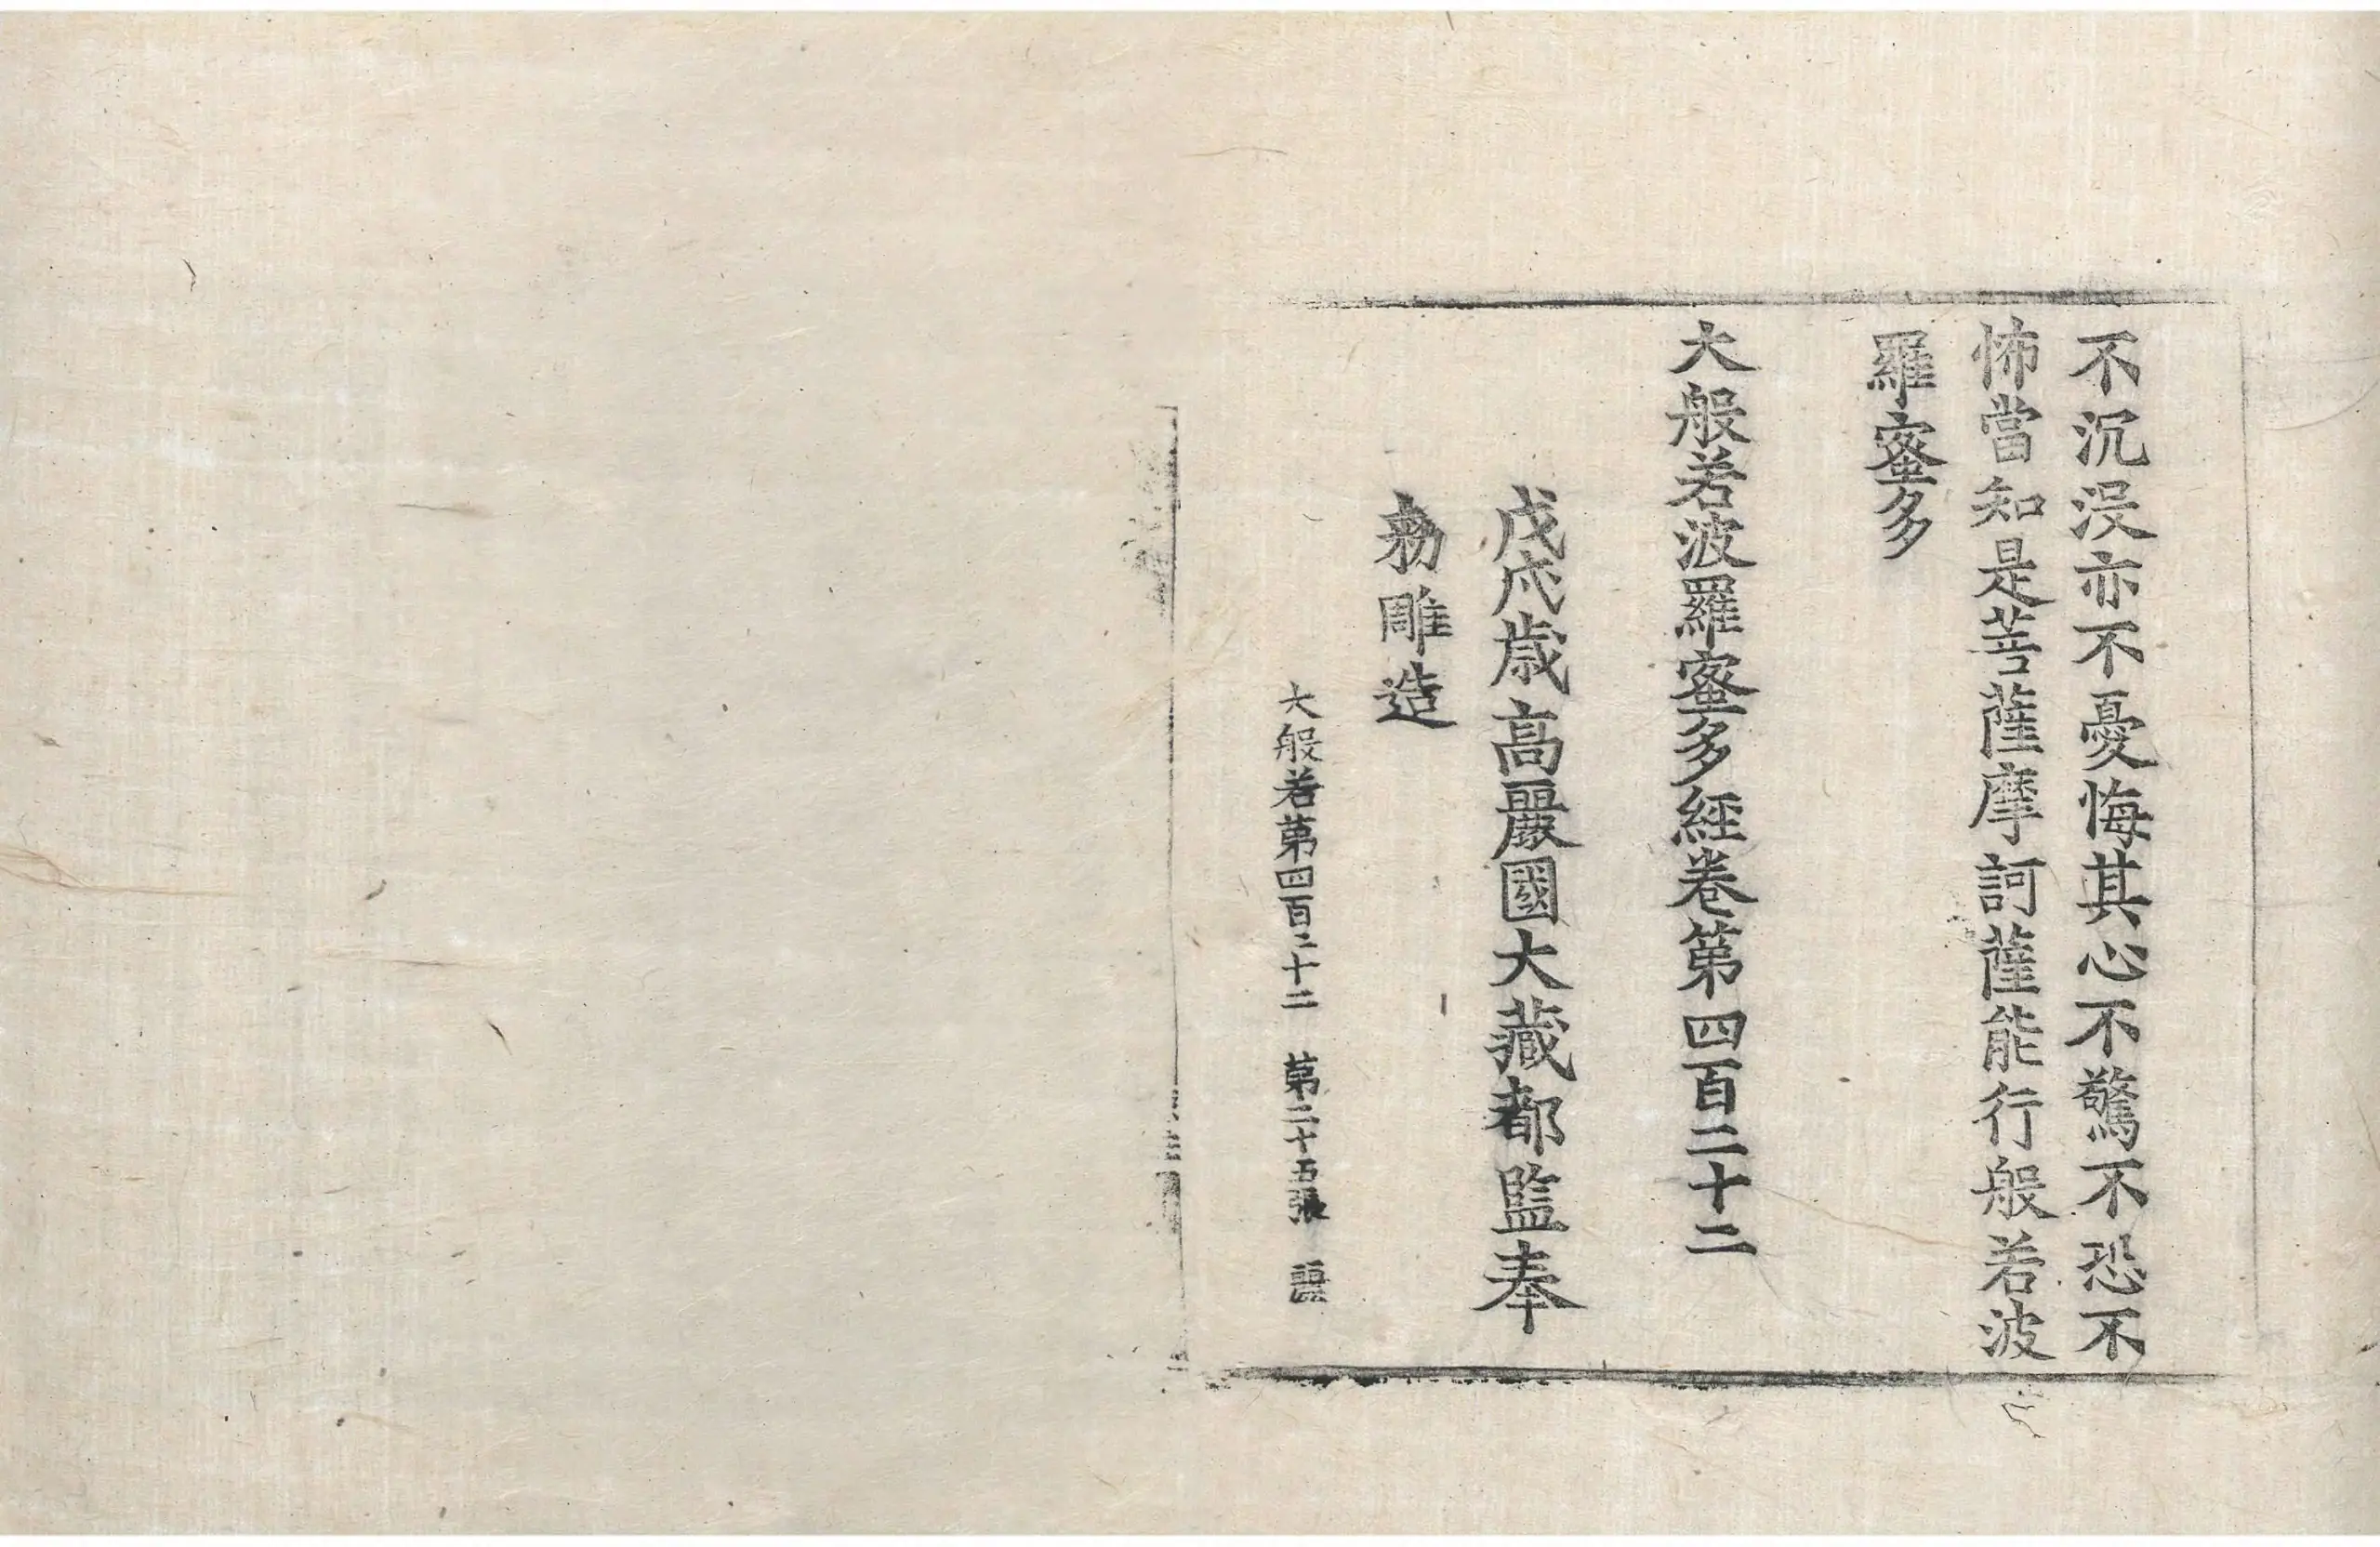 不沉没亦不憂悔其心不驚不恐不
怖當知是菩薩摩訶薩能行般若波
羅蜜多
大般若波羅蜜多經卷第四百二十二
戊戌歲高麗國大藏都監奉
勑雕造
大般若第四百二十二 第二十五張